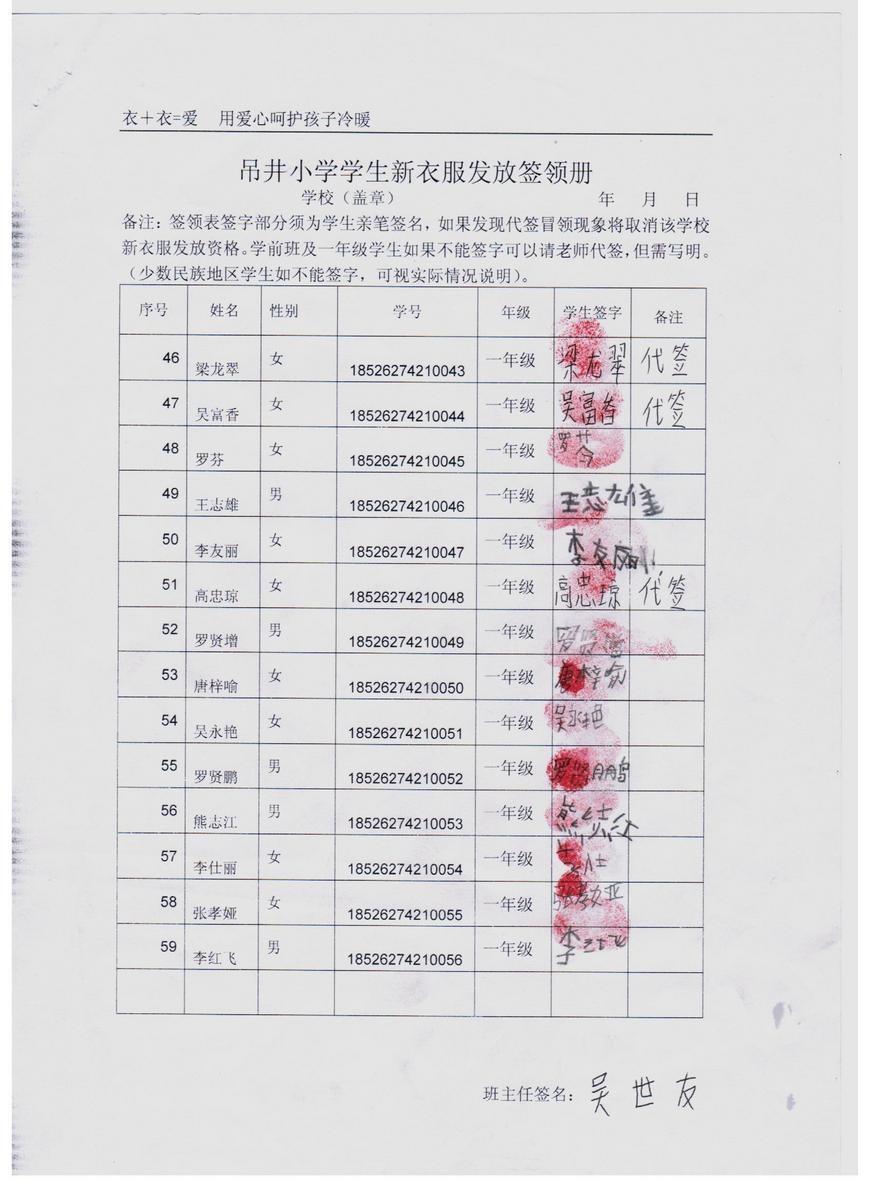 衣＋衣=爱 用爱心呵护孩子冷暖
吊井小学学生新衣服发放签领册
学校（盖章） 年 月 日
备注：签领表签字部分须为学生亲笔签名，如果发现代签冒领现象将取消该学校
新衣服发放资格。学前班及一年级学生如果不能签字可以请老师代签，但需写明。
（少数民族地区学生如不能签字，可视实际情况说明）。
序号 姓名 性别 学号 年级 学生签字 备注
46 梁龙翠 女 18526274210043 一年级 梁龙翠 代签
47 吴富香 女 18526274210044 一年级 吴富香 代签
48 罗芬 女 18526274210045 一年级 罗芬
49 王志雄 男 18526274210046 一年级 王志雄
50 李友丽 女 18526274210047 一年级 李友丽
51 高忠琼 女 18526274210048 一年级 高忠琼 代签
52 罗贤增 男 18526274210049 一年级 罗贤增
53 唐梓喻 女 18526274210050 一年级 唐梓喻
54 吴永艳 女 18526274210051 一年级 吴永艳
55 罗贤鹏 男 18526274210052 一年级 罗贤鹏
56 熊志江 男 18526274210053 一年级 熊志江
57 李仕丽 女 18526274210054 一年级
58 张孝娅 女 18526274210055 一年级 张孝娅
59 李红飞 男 18526274210056 一年级 李红飞
班主任签名：吴世友